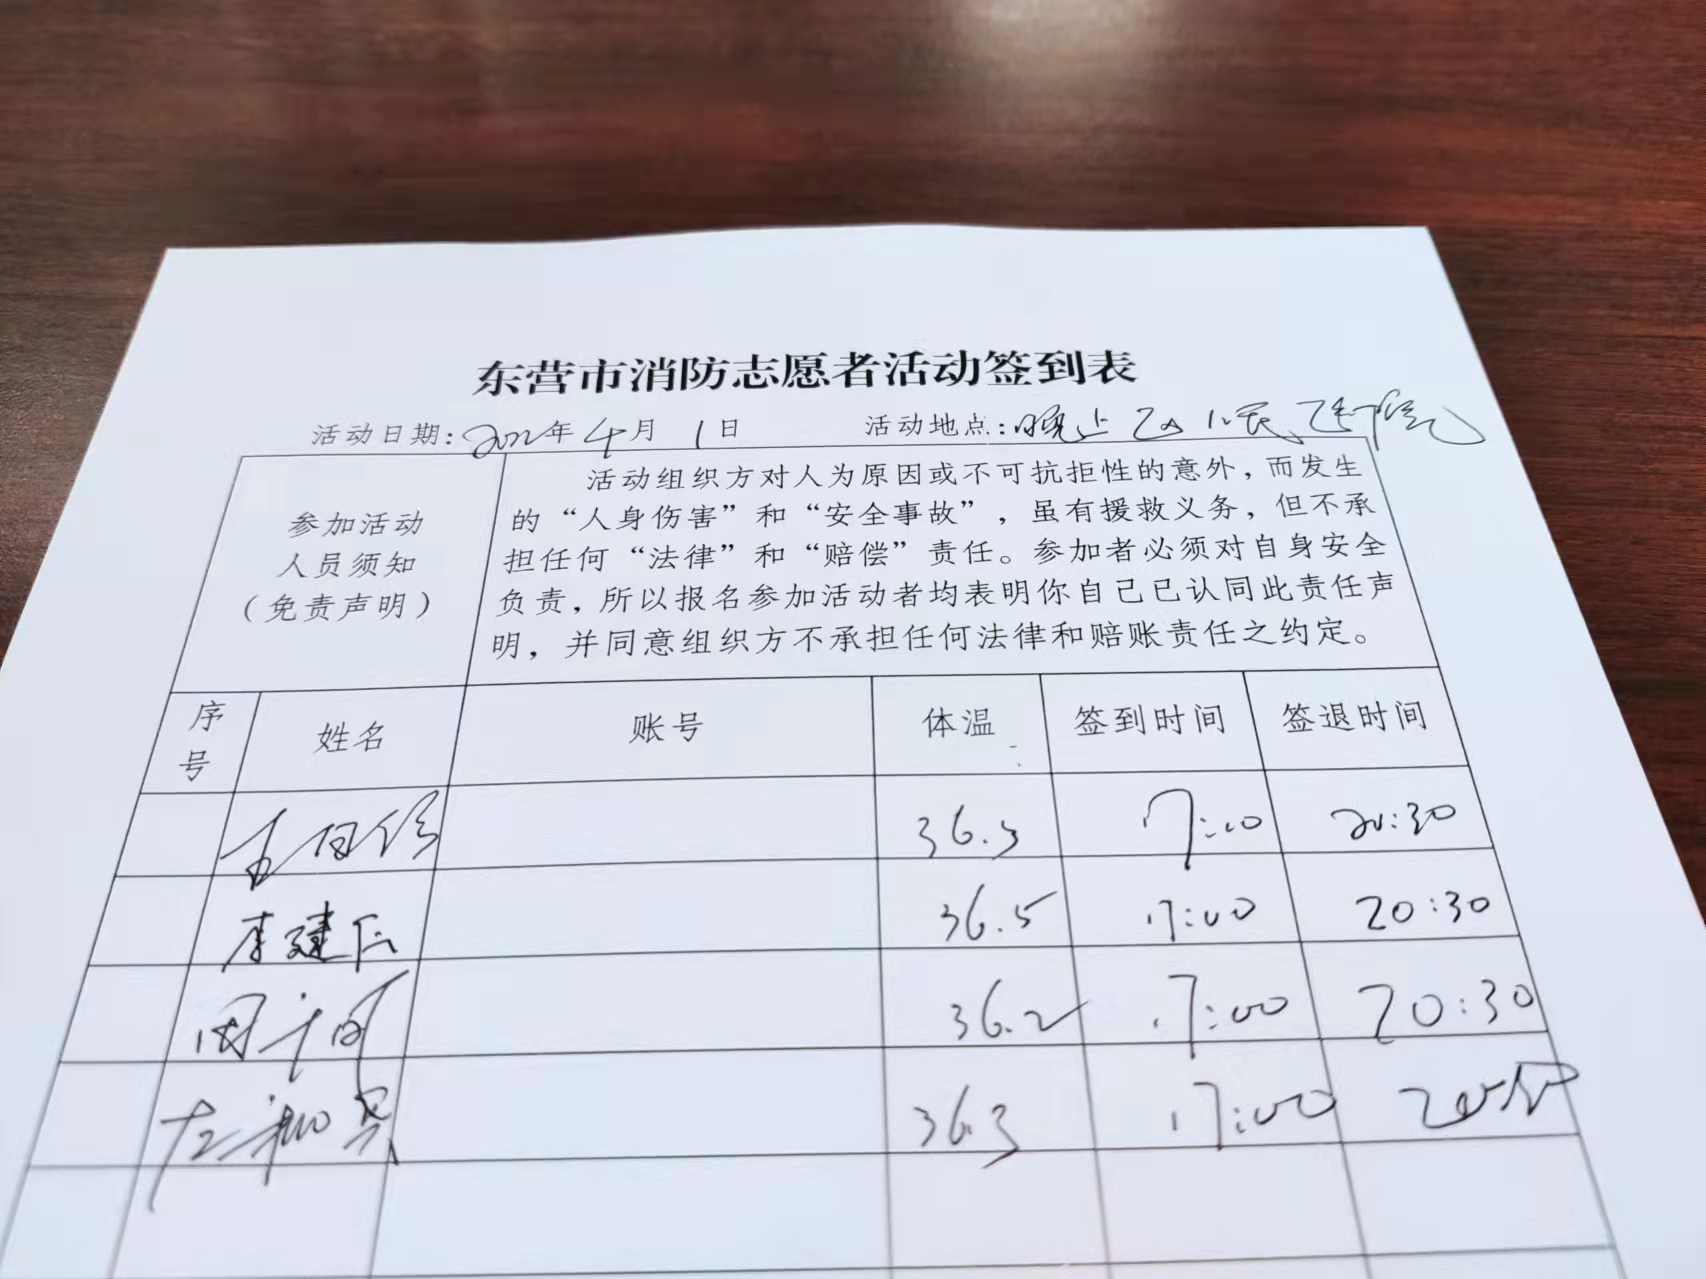 东营市消防志愿者活动签到表
活动日期:2022年4月1日 活动地点:晚上 人民
参加活动
人员须知
（免责声明）
活动组织方对人为原因或不可抗拒性的意外，而发生
的“人身伤害”和“安全事故”，虽有援救义务，但不承
担任何“法律”和“赔偿”责任。参加者必须对自身安全
负责，所以报名参加活动者均表明你自己已认同此责任声
明，并同意组织方不承担任何法律和赔账责任之约定。
序号 姓名 账号 体温 签到时间 签退时间
36.3 17:00 20:30
李建 36.5 17:00 20:30
周 36.2 17:00 20:30
左 36.3 17:00